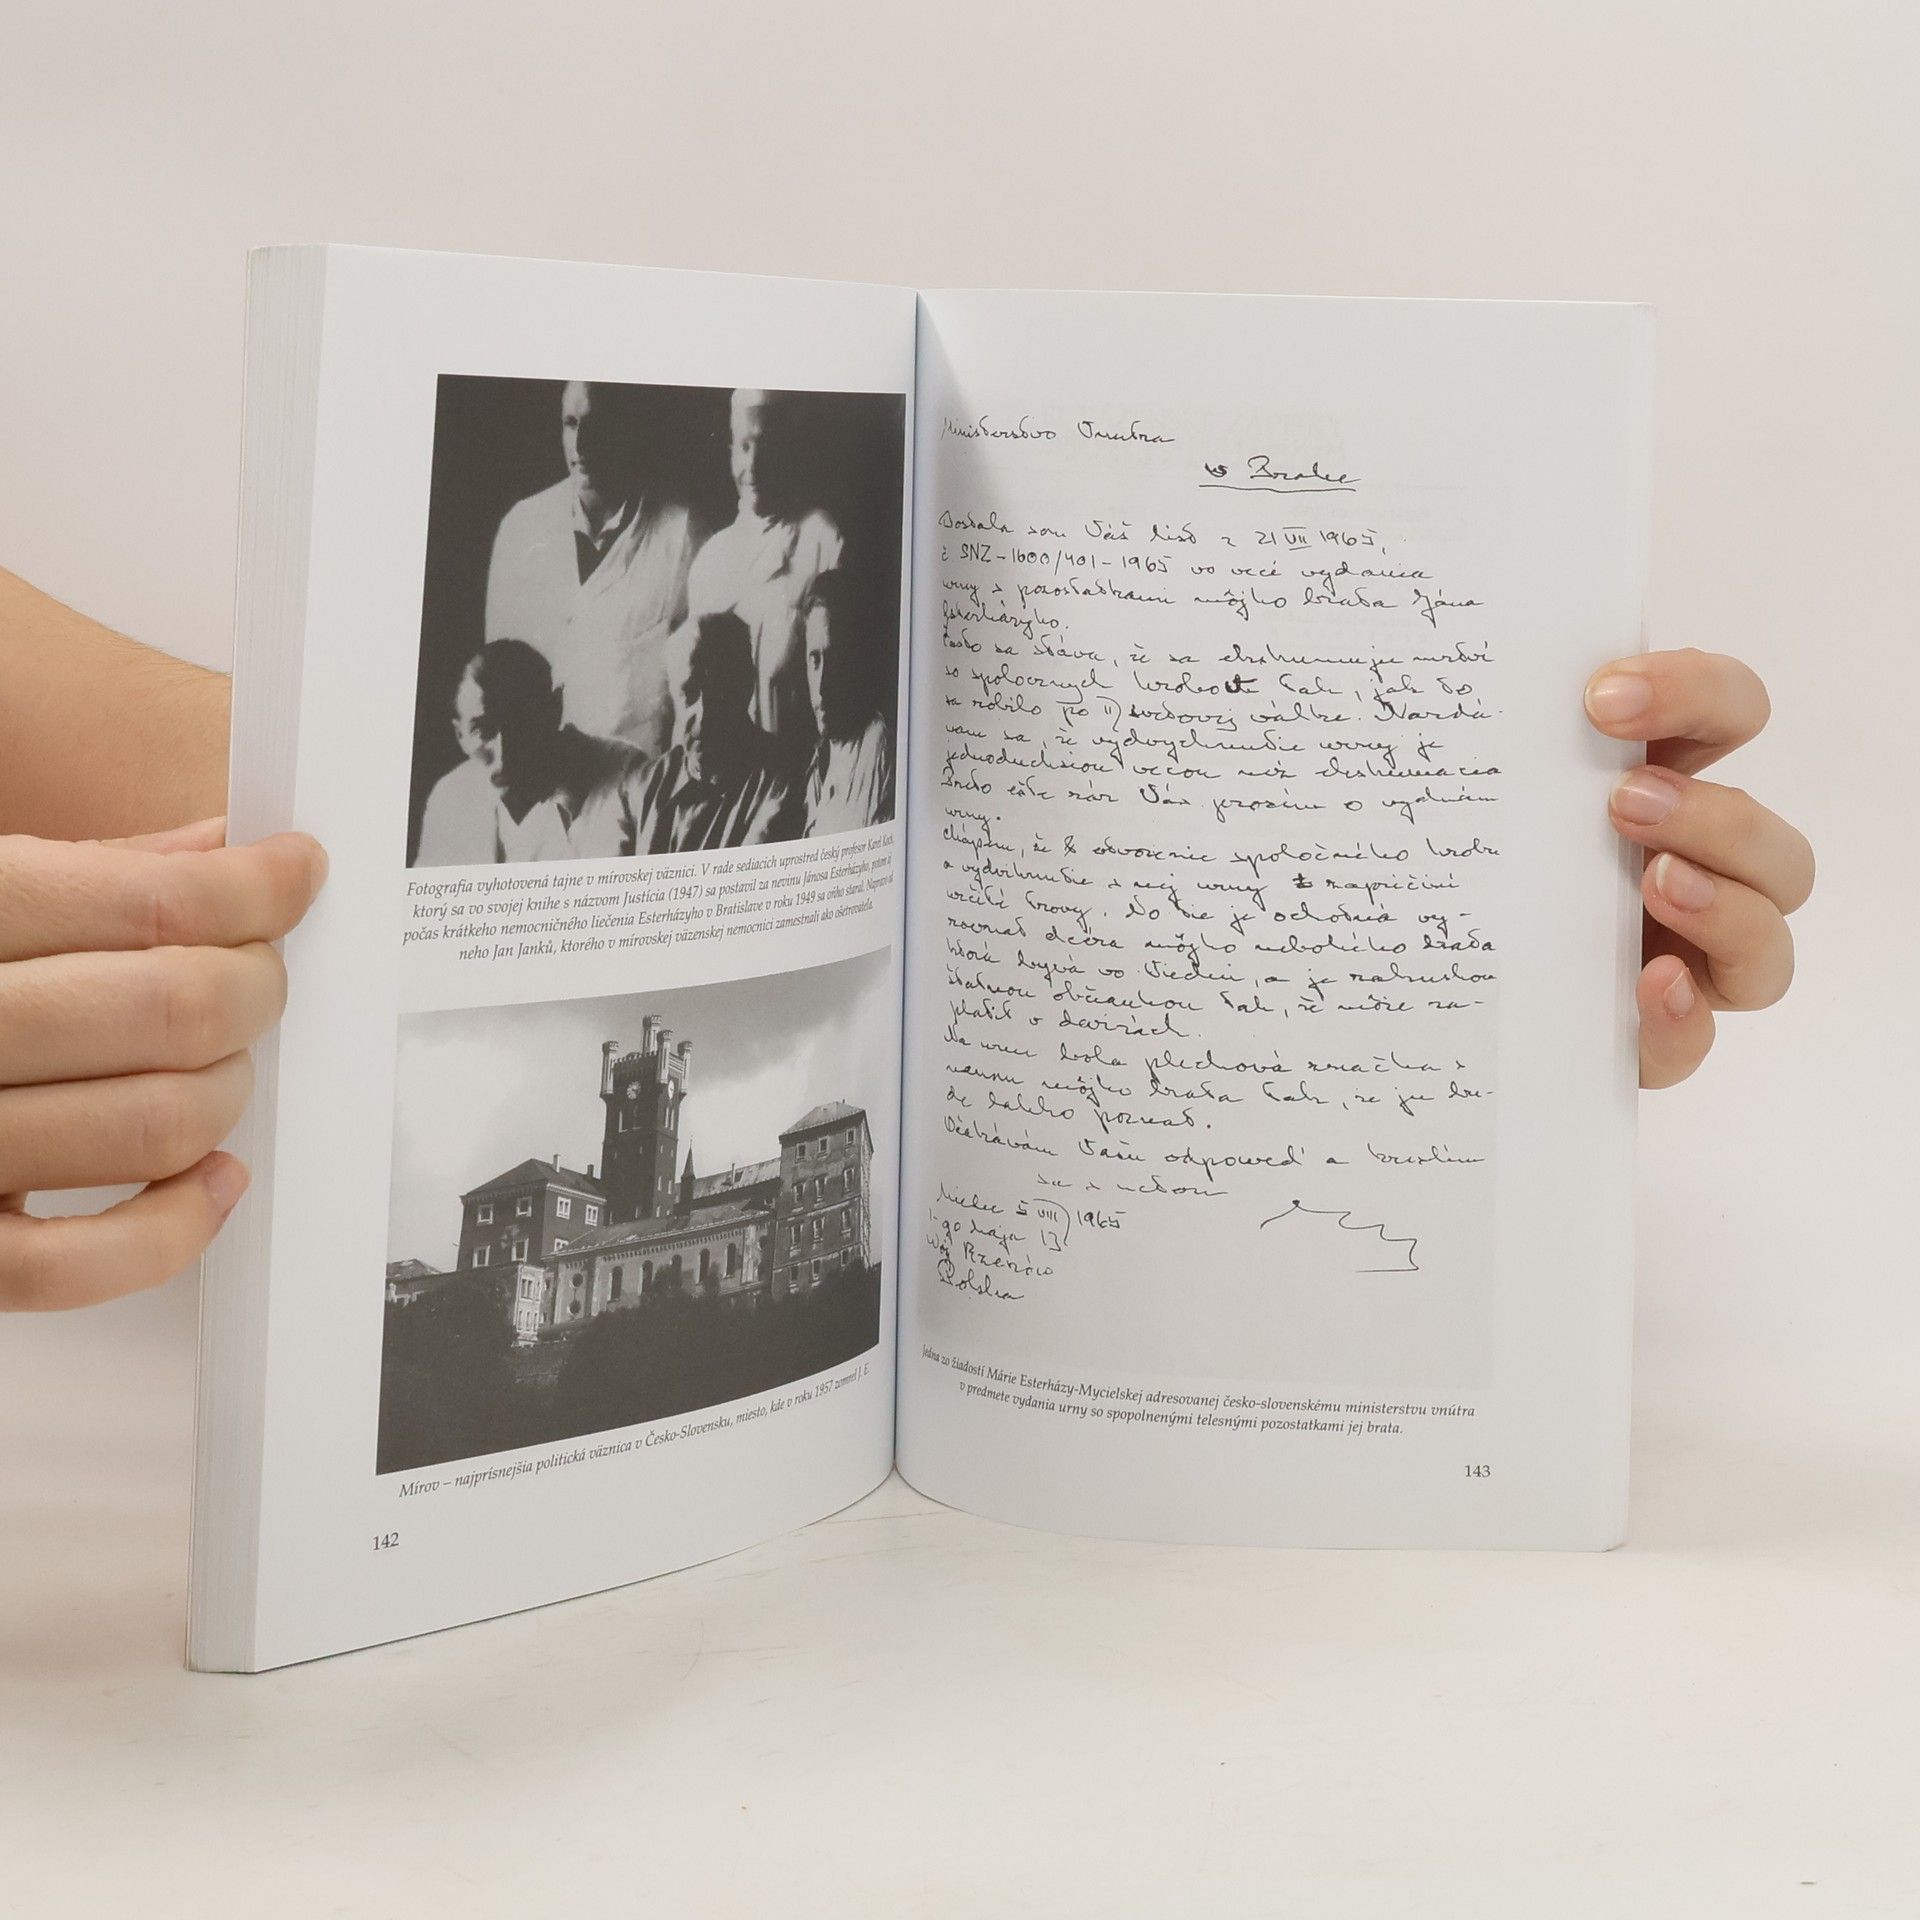 Fotografia vyhotovená tajne v mírovskej väznici. V rade sediacich uprostred český profesor Karel Kock,
ktorý sa vo svojej knihe s názvom Justícia (1947) sa postavil za nevinu Jánosa Esterházyho, potom aj
počas krátkeho nemocničného liečenia Esterházyho v Bratislave v roku 1949 sa oňho staral. Napravo od
neho Jan Janků, ktorého v mírovskej väzenskej nemocnici zamestnali ako ošetrovateľa.
Mírov – najprísnejšia politická väznica v Česko-Slovensku, miesto, kde v roku 1957 zomrel J. E.
142
Ministerstvo Vnutra
w Prahe
Dostala som Váš list z 21 VII 1965,
č SNZ-1600/401-1965 vo veci vydania
urny s pozostatkami môjho brata Jána
Esterházyho.
Často sa stáva, že sa ekshumuju mrtví
so spolocznych hrobov tak, jak to
sa robilo po II) svetovej válke. Nazdá-
vam sa, že vydvychnutie urny je
jednoduchsiou vecou než ekshumacia
Preto ešte ráz Vás prosím o vydním
urny.
Chápem, že otvorenie spoločného hrobu
a vydvihnutie z nej urny zapríčiní
určité trovy. No tie je ochotná vy-
rovnat dcéra môjho nebohého brata
ktorá byvá vo Viedni, a je rakuskou
štatnou občiankou tak, že môže za-
platit v devizách.
Na urne bola plechová značka s
menom môjho brata tak, že ju bu-
de lahko poznat.
Očekávám Vašu odpoweď a kreslím
sa s uctou
Mielec 5 VIII) 1965
1-go Maja 13
Woj Rzeszów
Polska
Jedna zo žiadostí Márie Esterházy-Mycielskej adresovanej česko-slovenskému ministerstvu vnútra
v predmete vydania urny so spopolnenými telesnými pozostatkami jej brata.
143